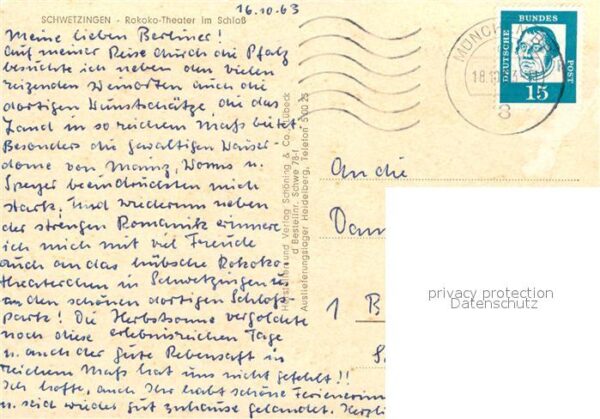 16.10.63
SCHWETZINGEN - Rokoko-Theater im Schloß
Meine lieben Berliner!
Auf meiner Reise durch die Pfalz
besuchte ich neben den vielen
reizenden Weinorten auch die
dortigen Kunstschätze die das
Land in so reichem Maß bietet.
Besonders die gewaltigen Kaiser-
dome von Mainz, Worms u.
Speyer beeindruckten mich
stark, und wiederum neben
der strengen Romanik erinnere
ich mich mit viel Freude
auch an das hübsche Rokoko-
theaterchen in Schwetzingen u.
an den schönen dortigen Schloß-
park! Die Herbstsonne vergoldete
noch diese erlebnisreichen Tage
u. auch der gute Rebensaft in
reichem Maß hat uns nicht gefehlt!!
Ich hoffe, auch Ihr habt schöne
u. seid wieder gut zuhause gelandet.
Hersteller und Verlag Schöning & Co., Lübeck
Bestellnr. Schwe 78-f
Auslieferungslager Heidelberg, Telefon 5 00 25
MÜNCHEN
18.10.
8
DEUTSCHE BUNDES POST
15
An die
1 B
privacy protection
Datenschutz